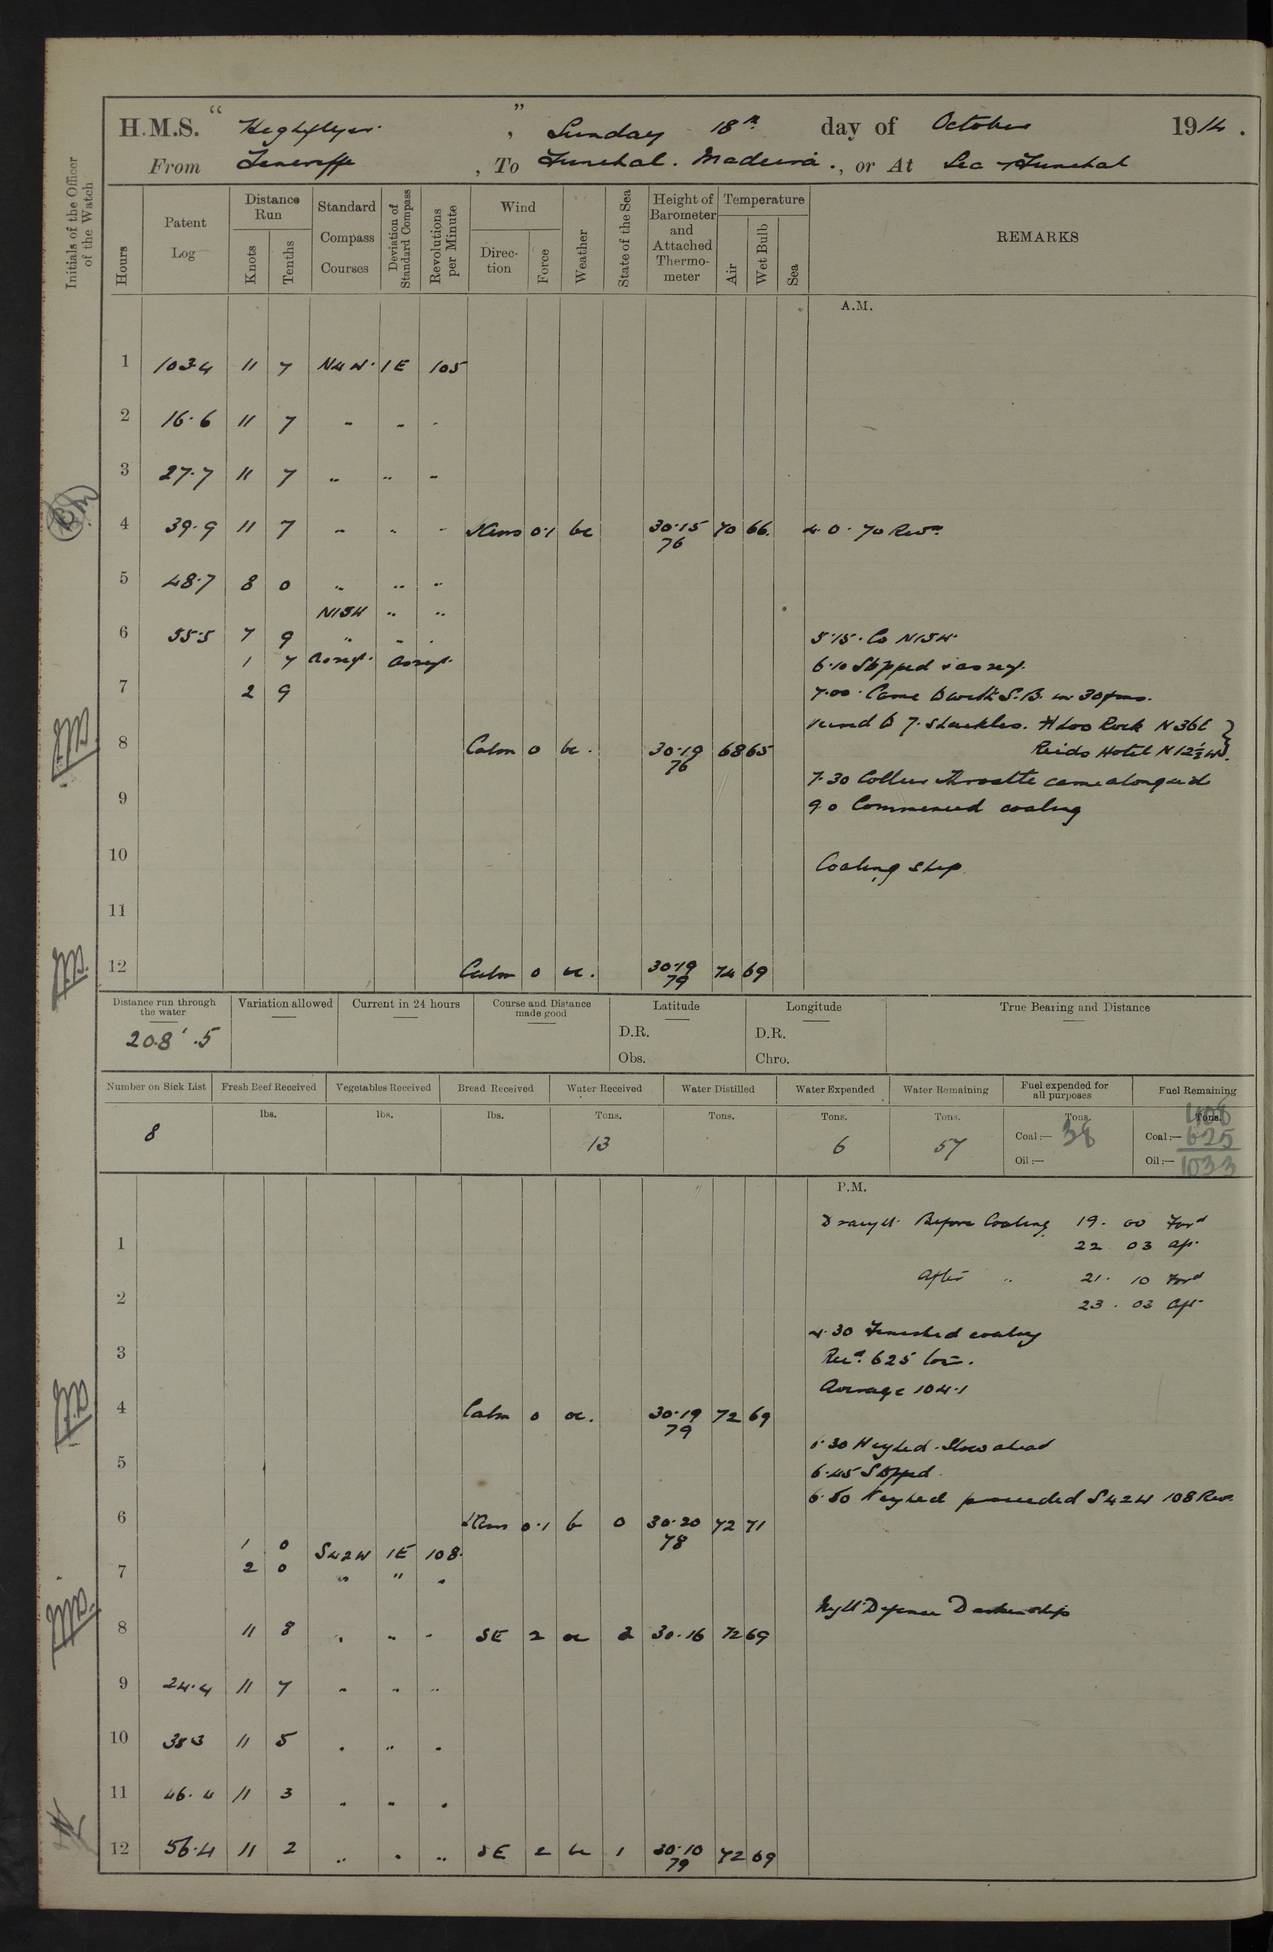 H.M.S. "Highflyer", Sunday 18th day of October 1914.
From Teneriffe, To Funchal. Madeira., or At Sea & Funchal
Initials of the Officer of the Watch
Hours
Patent Log
Distance Run
Knots Tenths
Standard Compass Courses
Deviation of Standard Compass
Revolutions per Minute
Wind
Direction Force
Weather
State of the Sea
Height of Barometer and Attached Thermometer
Temperature
Air Wet Bulb Sea
REMARKS
A.M.
1 103.4 11 7 N4W. 1E 105
2 16.6 11 7 " " "
3 27.7 11 7 " " "
4 39.9 11 7 " " " 0.1 bc 30.15 70 66. 4.0. 70 Revs
76
5 48.7 8 0 " " "
N15W " "
6 55.5 7 9 " " " 5.15. Co N15W.
1 7 as reqt. as reqt. 6.10 Stopped & as reqt.
7 2 9 7.00. Came to with S.B. in 30 fms.
veered to 7. shackles. Loo Rock N36E
8 Calm 0 bc. 30.19 68 65 Reids Hotel N12½W.
76
7.30 Collier came alongside
9 9.0 Commenced coaling
10 Coaling ship
11
12 Calm 0 bc. 30.19 74 69
79
Distance run through the water
208'.5
Variation allowed
Current in 24 hours
Course and Distance made good
Latitude
D.R.
Obs.
Longitude
D.R.
Chro.
True Bearing and Distance
Number on Sick List Fresh Beef Received Vegetables Received Bread Received Water Received Water Distilled Water Expended Water Remaining Fuel expended for all purposes Fuel Remaining
lbs. lbs. lbs. Tons. Tons. Tons. Tons. Tons. Tons.
408
8 13 6 57 Coal:— 38 Coal:— 625
Oil:— Oil:— 1033
P.M.
Draught. Before Coaling 19. 00 Ford
1 22 03 Aft.
After " 21. 10 Ford
2 23. 03 Aft.
4.30 Finished coaling
3 Recd. 625 tons.
Average 104.1
4 Calm 0 oc. 30.19 72 69
79
6.30 Weighed. Slow ahead
5 6.45 Stopped.
6.50 proceeded S42W 108 Revs
6 0.1 b 0 30.20 72 71
78
1 0 S42W 1E 108.
7 2 0 " " "
Night Defence Darken ship
8 11 8 " " " SE 2 oc 2 30.16 72 69
9 24.4 11 7 " " "
10 11 5 " " "
11 46.4 11 3 " " "
12 56.4 11 2 " " " SE 2 bc 1 30.10 72 69
79